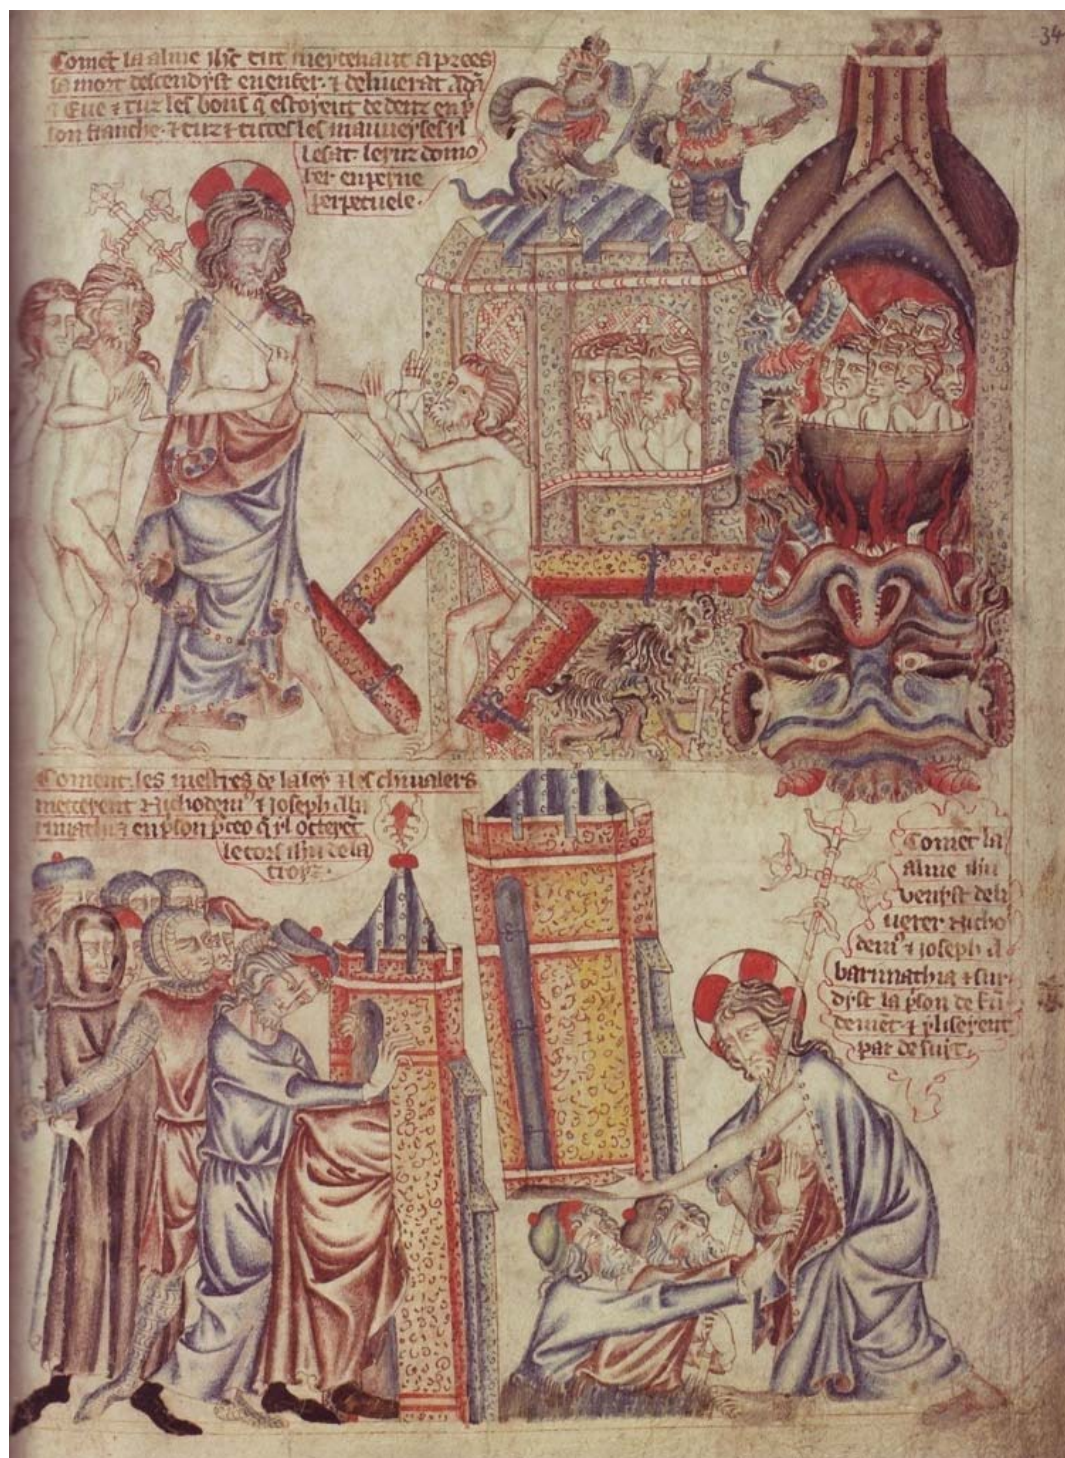 34
Comet la alme ihc tut meytenant aprees
sa mort descendyst en enfer · & deliuerat Ada
& Eue & tuz les bons q estoyent dedenz en p
son franche · & tuz & tuttes les mauueyses yl
lesat · leynz domo
rer en peyne
perpetuele ·
Coment · les mestres de la ley & les chiualers
metterent Nichodem⁹ & ioseph
en pson pceo q yl octerent
le cors ihu de la
croyz ·
Comet la
alme ihu
venyst deli
uerer Nicho
dem⁹ & ioseph a
barimathia & sur
dyst la pson de fu
demet & yl iseyent
par desuz ·